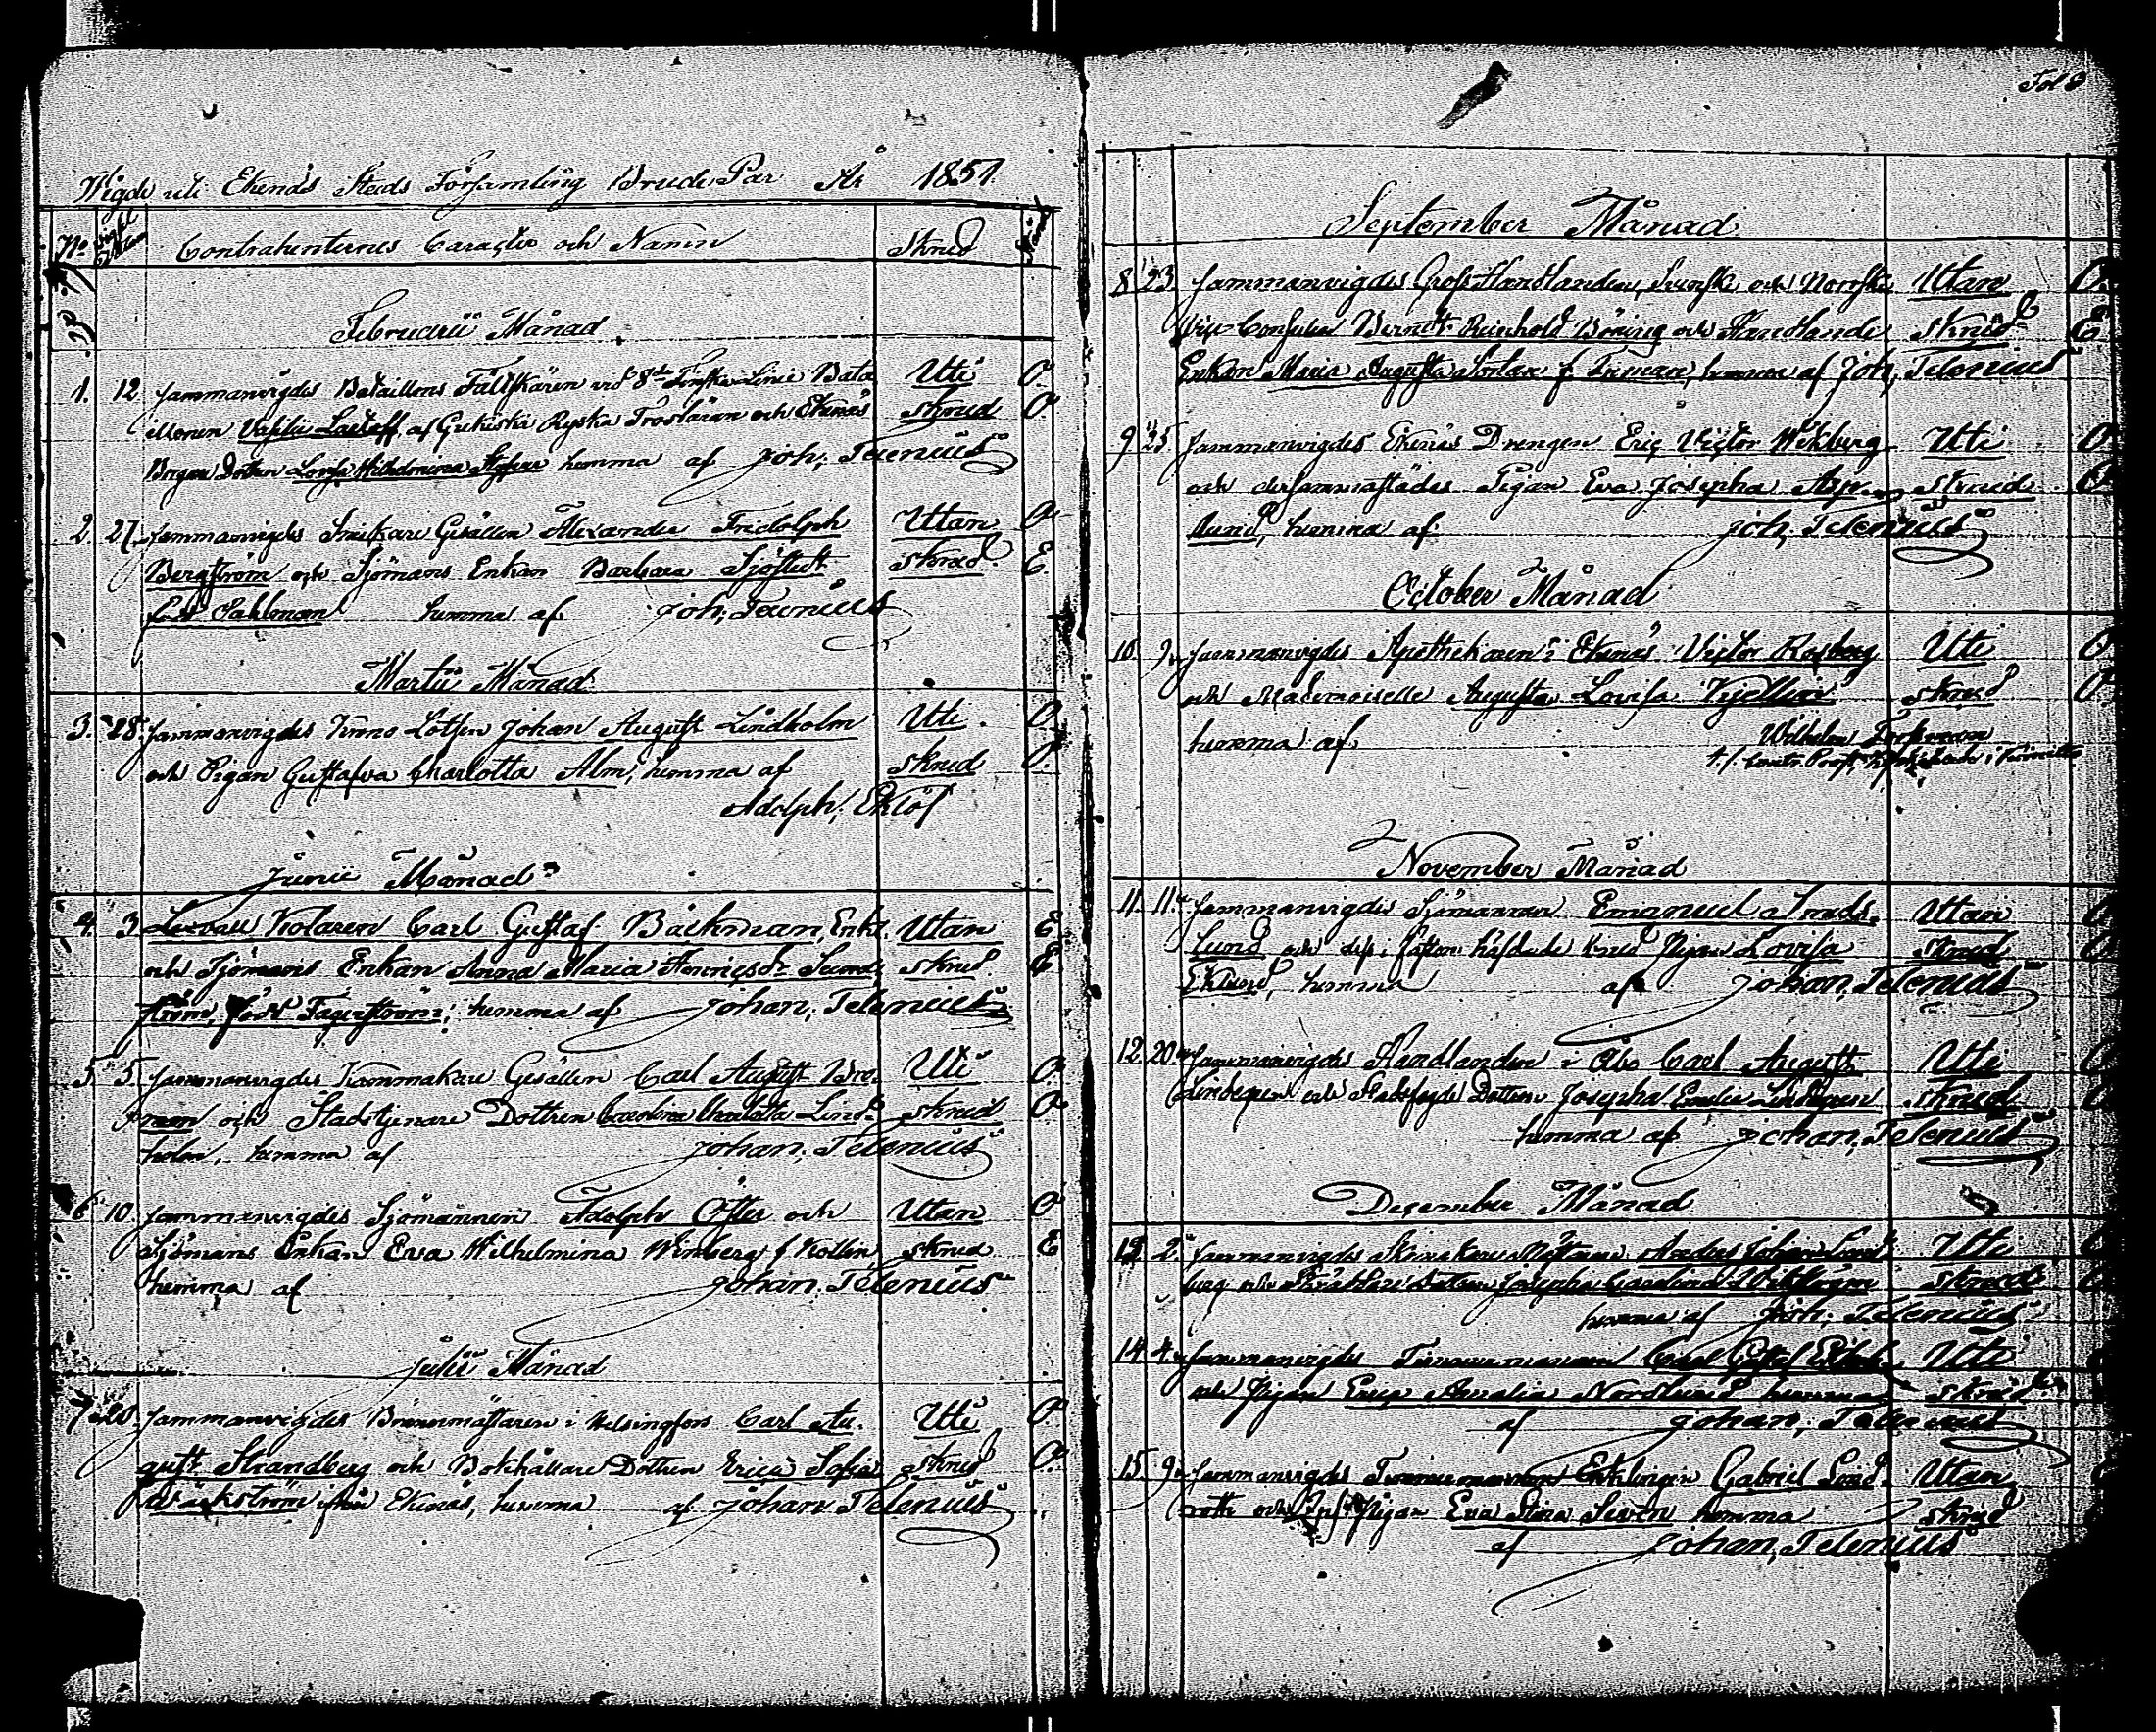 Wigde uti Ekenäs Stads Församling Brude Par År 1851.
No Contrahenternes Caracter och Namn Skrud
Februarii Månad
1. 12 Sammanvigdes Bataillons Fältskären vid 8de Finska Linie Bata Uti O.
illonen af Grekiska Ryska Trosläran och Ekenäs skrud O.
Borgare Dottren Lovisa Wilhelmina hemma af Joh. Telenius
2. 27 Sammanvigdes Snickare Gesällen Alexander Fridolph Utan O.
Bergström och Sjömans Enkan Barbara Sjöstedt skrud. E.
född Sahlman hemma af Joh. Telenius
Martii Månad
3. 28. Sammanvigdes Krono Lotsen Johan August Lindholm Uti O.
och Pigan Gustafva Charlotta Alm, hemma af skrud O.
Adolph Eklöf
Junii Månad
4. 3 Carl Gustaf Bäckman, Enkl. Utan E
och Sjömans Enkan Anna Maria Henricsdr skrud. E
ström, född Fagerström; hemma af Johan Telenius
5. 5 Sammanvigdes Kammakare Gesällen Carl August Uti O.
man och Stadstjenare Dottren Carolina Charlotta Lind skrud O
holm, hemma af Johan Telenius
6 10 Sammanvigdes Sjömannen Adolph Öster och Utan O
Sjömans Enkan Eva Wilhelmina Winberg f. Kollin skrud E
hemma af Johan Telenius
Julii Månad
7 20 Sammanvigdes i Helsingfors Carl Au- Uti O
gust Strandberg och Bokhållare Dottren Erica Sofia skrud O.
Wäckström ifrån Ekenäs, hemma af Johan Telenius
Fol
September Månad
8 23 Sammanvigdes Gross Handlanden, Svenske och Norrske Utan O.
Vice Consulen Berndt Reinhold Böning och Handlande skrud E
Enkan Maria Augusta f. hemma af Joh. Telenius
9 25 Sammanvigdes Ekenäs Drengen Eric Victor Wikberg Uti O
och dersammastädes Pigan Eva Josepha Asp- skrud. O
lund, hemma af Joh. Telenius
October Månad
10 9 Sammanvigdes Apothekaren i Ekenäs Victor Rosberg Uti O
och Mademoiselle Augusta Lovisa Kjellin skrud O.
hemma af Wilhelm
November Månad
11. 11. Sammanvigdes Sjömannen Emanuel Sands- Utan O
lund och Pigan Lovisa skrud O
Eklund, hemma af Johan Telenius
12 20 Sammanvigdes Handlanden i Åbo Carl August Uti O
Lindegren och Dottren Josepha Emilie skrud O
hemma af Johan Telenius
December Månad
13 2 Sammanvigdes Anders Johan Lind Uti O
berg och Dottren Josepha Carolina Wikström skrud O
hemma af Joh. Telenius
14 4 Sammanvigdes Timmermannen Carl Gustaf Uti
och Pigan Erica Amalia Nordlund hemma skrud
af Johan Telenius
15. 9 Sammanvigdes Timmermannen Enklingen Gabriel Utan
och Pigan Eva Stina hemma skrud
af Johan Telenius